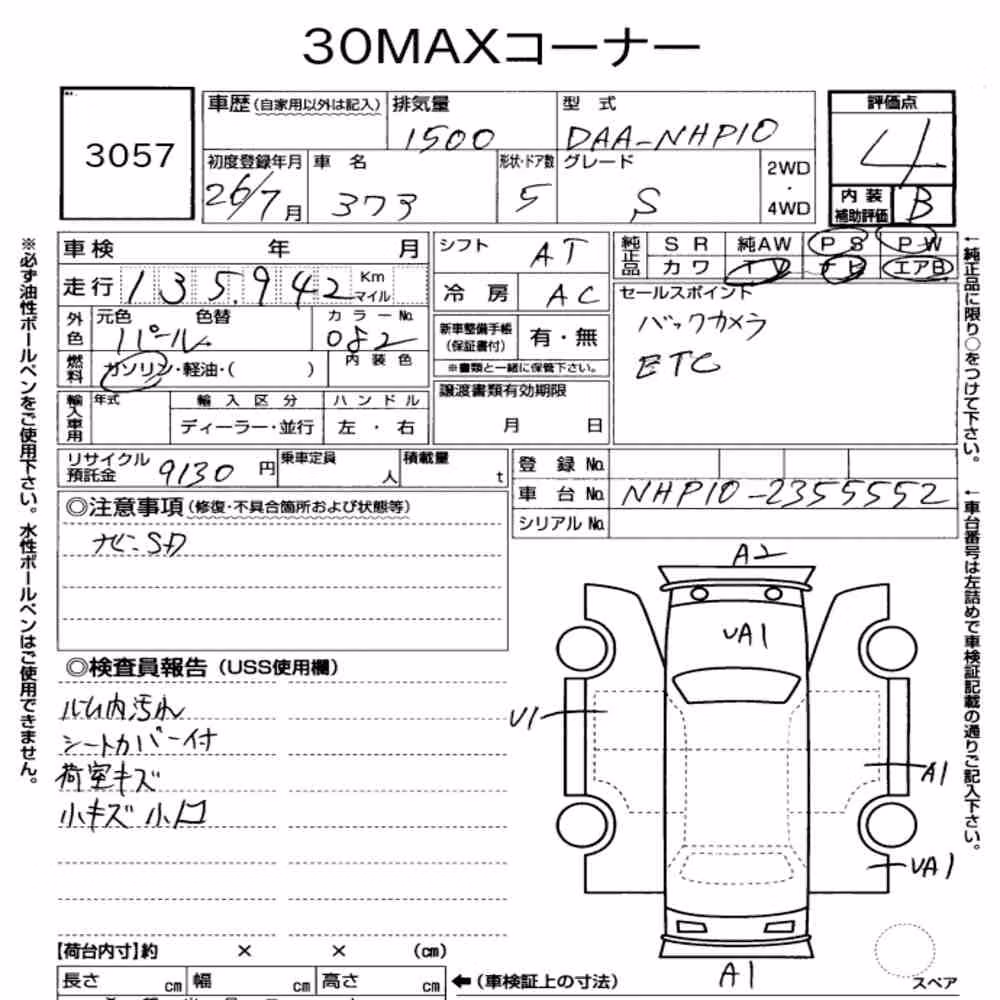 30MAXコーナー
3057
車歴(自家用以外は記入) 排気量 型式 評価点
1500 DAA-NHP10 4
初度登録年月 車名 形状・ドア数 グレード 2WD・4WD 内装補助評価
26/7月 373 5 S B
車検 年 月 シフト AT 純正品 SR 純AW PS PW
カワ TV ナビ エアB
走行 135,942 Km マイル 冷房 AC セールスポイント
外色 元色 色替 カラーNo. 新車整備手帳(保証書付) 有・無 バックカメラ
パール 082 ※書類と一緒に保管下さい。 ETC
燃料 ガソリン・軽油・( ) 内装色
譲渡書類有効期限
月 日
輸入車用 年式 輸入区分 ハンドル
ディーラー・並行 左・右
リサイクル預託金 9130円 乗車定員 人 積載量 t 登録No.
車台No. NHP10-2355552
シリアルNo.
◎注意事項(修復・不具合箇所および状態等)
ナビ-SD
◎検査員報告(USS使用欄)
ルーム内汚れ
シートカバー付
荷室キズ
小キズ 小凹
A2
UA1
U1
A1
UA1
A1
スペア
【荷台内寸】約 × × (cm)
長さ cm 幅 cm 高さ cm ←(車検証上の寸法)
※必ず油性ボールペンをご使用下さい。水性ボールペンはご使用できません。
←純正品に限り○をつけて下さい。
←車台番号は左詰めで車検証記載の通りご記入下さい。